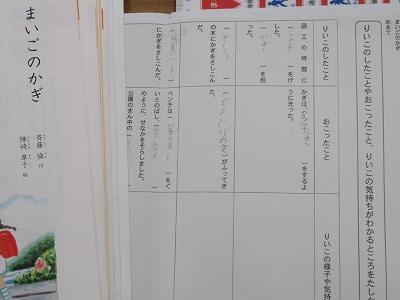 まいごのかぎ
めあて
りいこのしたことやおこったこと、りいこの気持ちがわかるところをたしか
りいこのしたこと
おこったこと
りいこの様子や気持
図工の時間に
(うさぎ)をけ
した。
(かぎ)を拾
かぎは、(まばたき)をするよ
うに光った。
(さくら)
の木にかぎをさしこん
だ。
(どんぐりの実)がふってき
た。
にかぎをさしこんだ。
ベンチは(四本のあし)をぐ
いとのばし、
のように、せなかをそらしました。
公園のまん中の
まいごのかぎ
斉藤 倫 作
陣崎 草子 絵